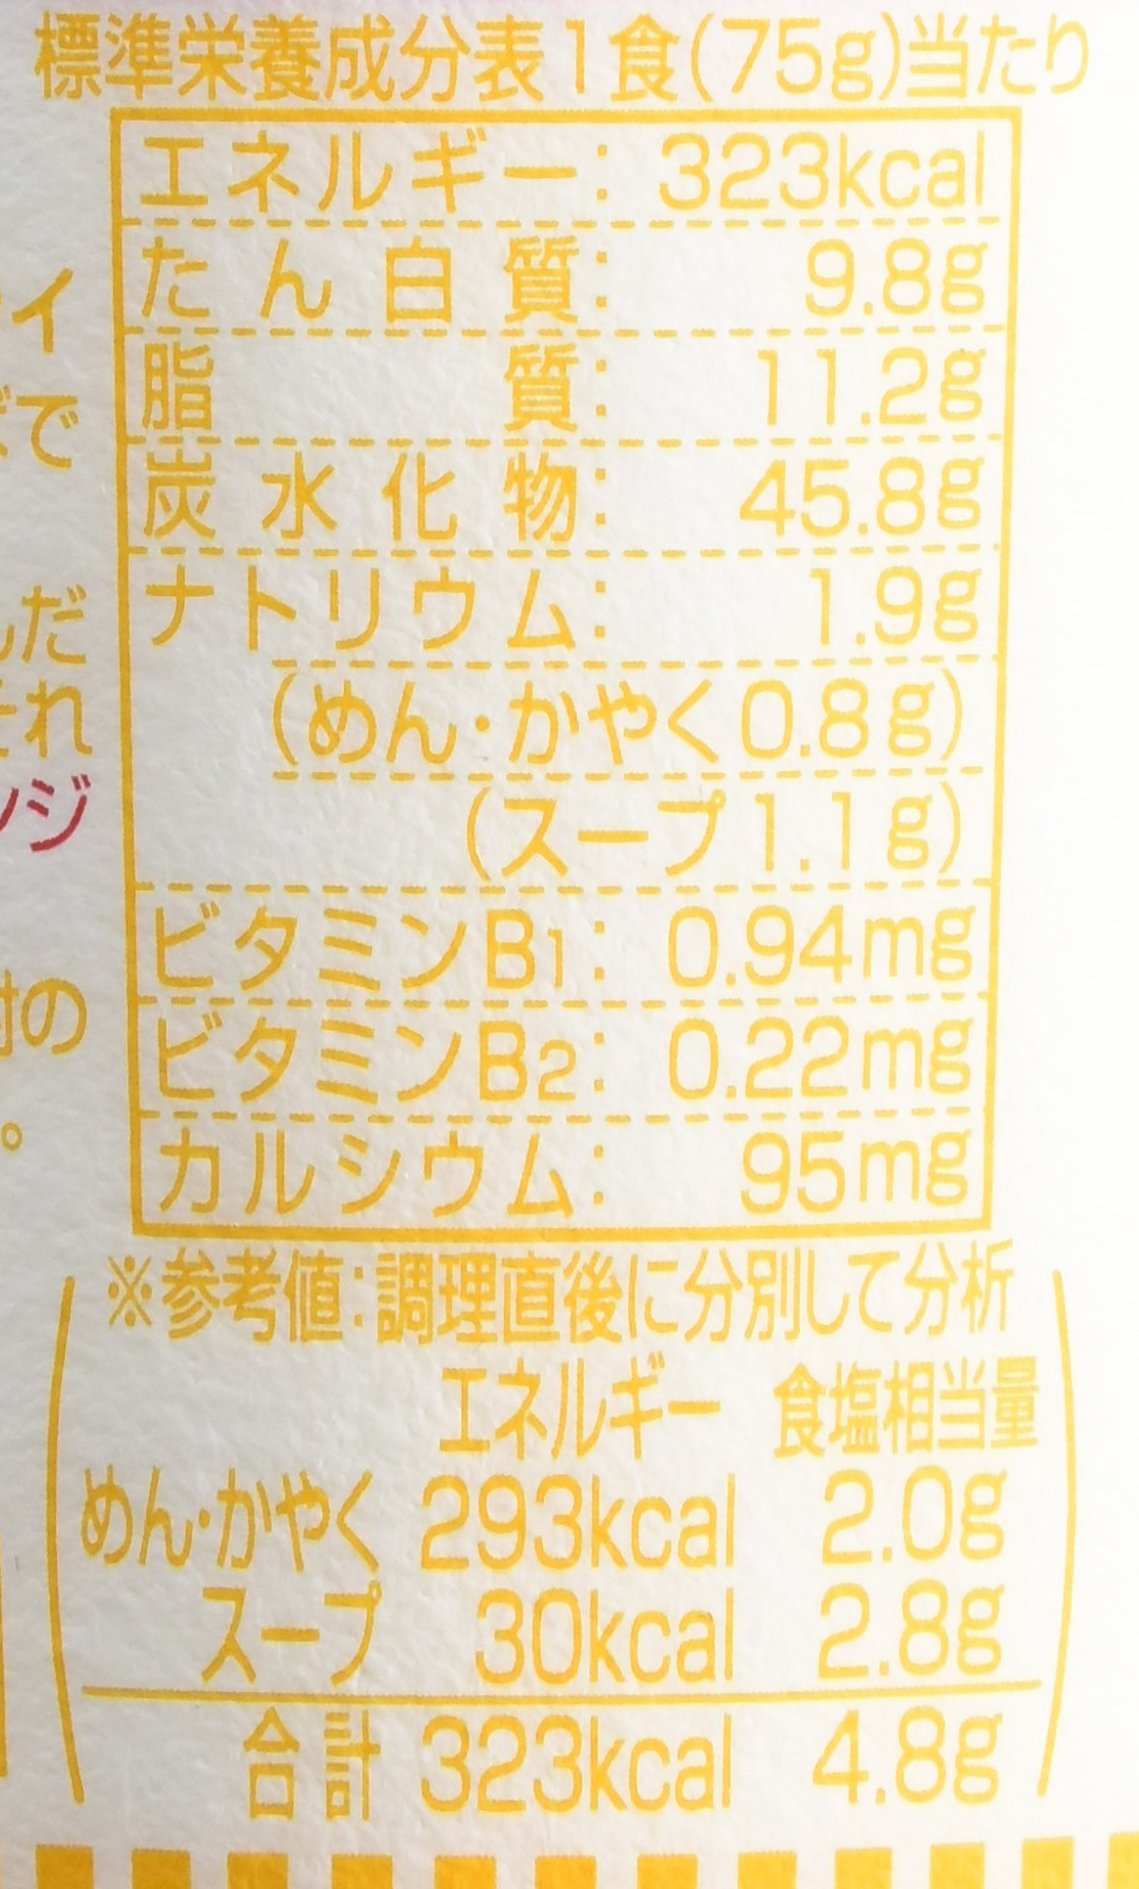 標準栄養成分表1食(75g)当たり
エネルギー: 323kcal
たん白質: 9.8g
脂質: 11.2g
炭水化物: 45.8g
ナトリウム: 1.9g
(めん・かやく0.8g)
(スープ1.1g)
ビタミンB1: 0.94mg
ビタミンB2: 0.22mg
カルシウム: 95mg
※参考値:調理直後に分別して分析
エネルギー 食塩相当量
めん・かやく 293kcal 2.0g
スープ 30kcal 2.8g
合計 323kcal 4.8g
イ
で
だ
れ
ンジ
の
。